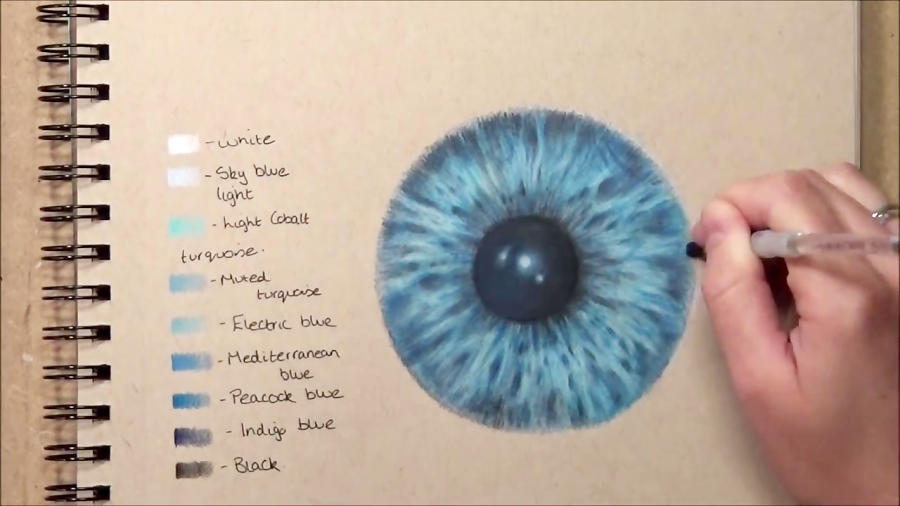 - White
- Sky blue
light
- Light Cobalt
turquoise.
- Muted
turquoise
- Electric blue
- Mediterranean
blue
- Peacock blue
- Indigo blue
- Black